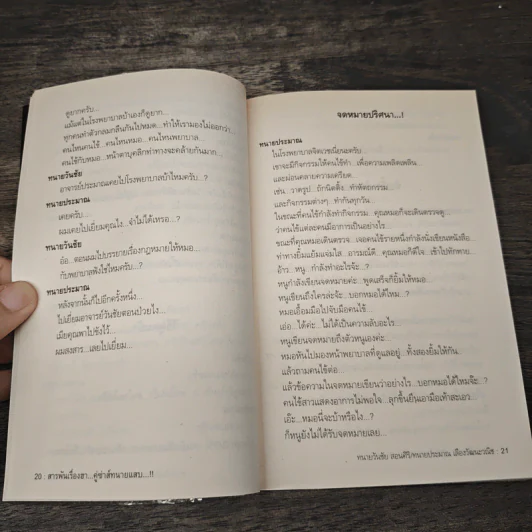 ดูยากครับ...
แม้แต่ในโรงพยาบาลบ้าเองก็ดูยาก...
ทุกคนทำตัวกลมกลืนกันไปหมด...ทำให้เรามองไม่ออกว่า...
คนไหนคนไข้...คนไหนหมอ...คนไหนพยาบาล...
คนไข้กับหมอ...หน้าตาบุคลิกท่าทางจะคล้ายกันมาก...
ทนายวันชัย
อาจารย์ประมาณเคยไปโรงพยาบาลบ้าไหมครับ...?
ทนายประมาณ
เคยครับ...
ผมเคยไปเยี่ยมคุณไง...จำไม่ได้เหรอ...?
ทนายวันชัย
อ๋อ...ตอนผมไปบรรยายเรื่องกฎหมายให้หมอ...
กับพยาบาลฟังใช่ไหมครับ...?
ทนายประมาณ
หลังจากนั้นก็ไปอีกครั้งหนึ่ง...
ไปเยี่ยมอาจารย์วันชัยตอนป่วยไง...
เมียคุณพาไปขังไว้...
ผมสงสาร...เลยไปเยี่ยม...
20 : สารพันเรื่องฮา...คู่ซ่าส์ทนายแสบ...!!
จดหมายปริศนา...!
ทนายประมาณ
ในโรงพยาบาลจิตเวชเนี่ยนะครับ...
เขาจะมีกิจกรรมให้คนไข้ทำ...เพื่อความเพลิดเพลิน...
และผ่อนคลายความเครียด...
เช่น...วาดรูป...ถักนิตติ้ง...ทำหัตถกรรม...
และกิจกรรมต่างๆ...ทำกันทุกวัน...
ในขณะที่คนไข้กำลังทำกิจกรรม...คุณหมอก็จะเดินตรวจดู...
ว่าคนไข้แต่ละคนมีอาการเป็นอย่างไร...
ขณะที่คุณหมอเดินตรวจ...เจอคนไข้รายหนึ่งกำลังนั่งเขียนหนังสือ...
ท่าทางยิ้มแย้มแจ่มใส...อารมณ์ดี...คุณหมอก็ดีใจ...เข้าไปทักทาย...
อ้าว...หนู...กำลังทำอะไรจ๊ะ...?
หนูกำลังเขียนจดหมายค่ะ...พูดเสร็จก็ยิ้มให้หมอ...
หนูเขียนถึงใครล่ะจ๊ะ...บอกหมอได้ไหม...?
หมอเอื้อมมือไปจับมือคนไข้...
เอ่อ...ได้ค่ะ...ไม่ได้เป็นความลับอะไร...
หนูเขียนจดหมายถึงตัวหนูเองค่ะ...
หมอหันไปมองหน้าพยาบาลที่ดูแลอยู่...ทั้งสองยิ้มให้กัน...
แล้วถามคนไข้ต่อ...
แล้วข้อความในจดหมายเขียนว่าอย่างไร...บอกหมอได้ไหมจ๊ะ...?
คนไข้สาวแสดงอาการไม่พอใจ...ลุกขึ้นยืนเอามือเท้าสะเอว...
เอ๊ะ...หมอนี่จะบ้าหรือไง...?
ก็หนูยังไม่ได้รับจดหมายเลย...
ทนายวันชัย สอนศิริ/ทนายประมาณ เลืองวัฒนะวณิช : 21